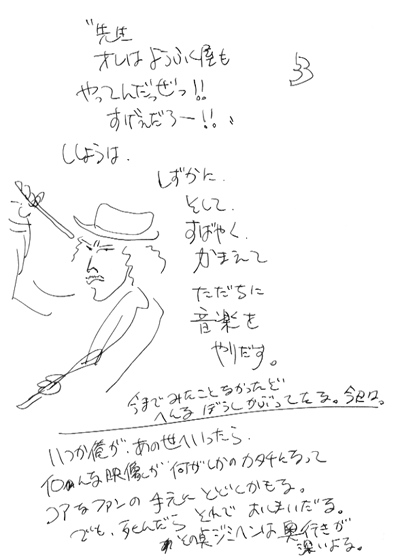 "先生
33
オレは ようふく屋も
やってんだっぜっ!!
すげぇだろー!!"
ししょうは.
しずかに.
そして.
すばやく.
かまえて
ただちに
音楽を
やりだす。
今までみたことなかったけど
へんな ぼうしかぶってたる。今日は。
いつか俺が、あの世へいったら、
映像が何がしかのカタチになって
コアなファンの手えに とどくかもる。
でも、死んだら それで おしまいだる。
その点ジミヘンは 奥行きが
深いよる。